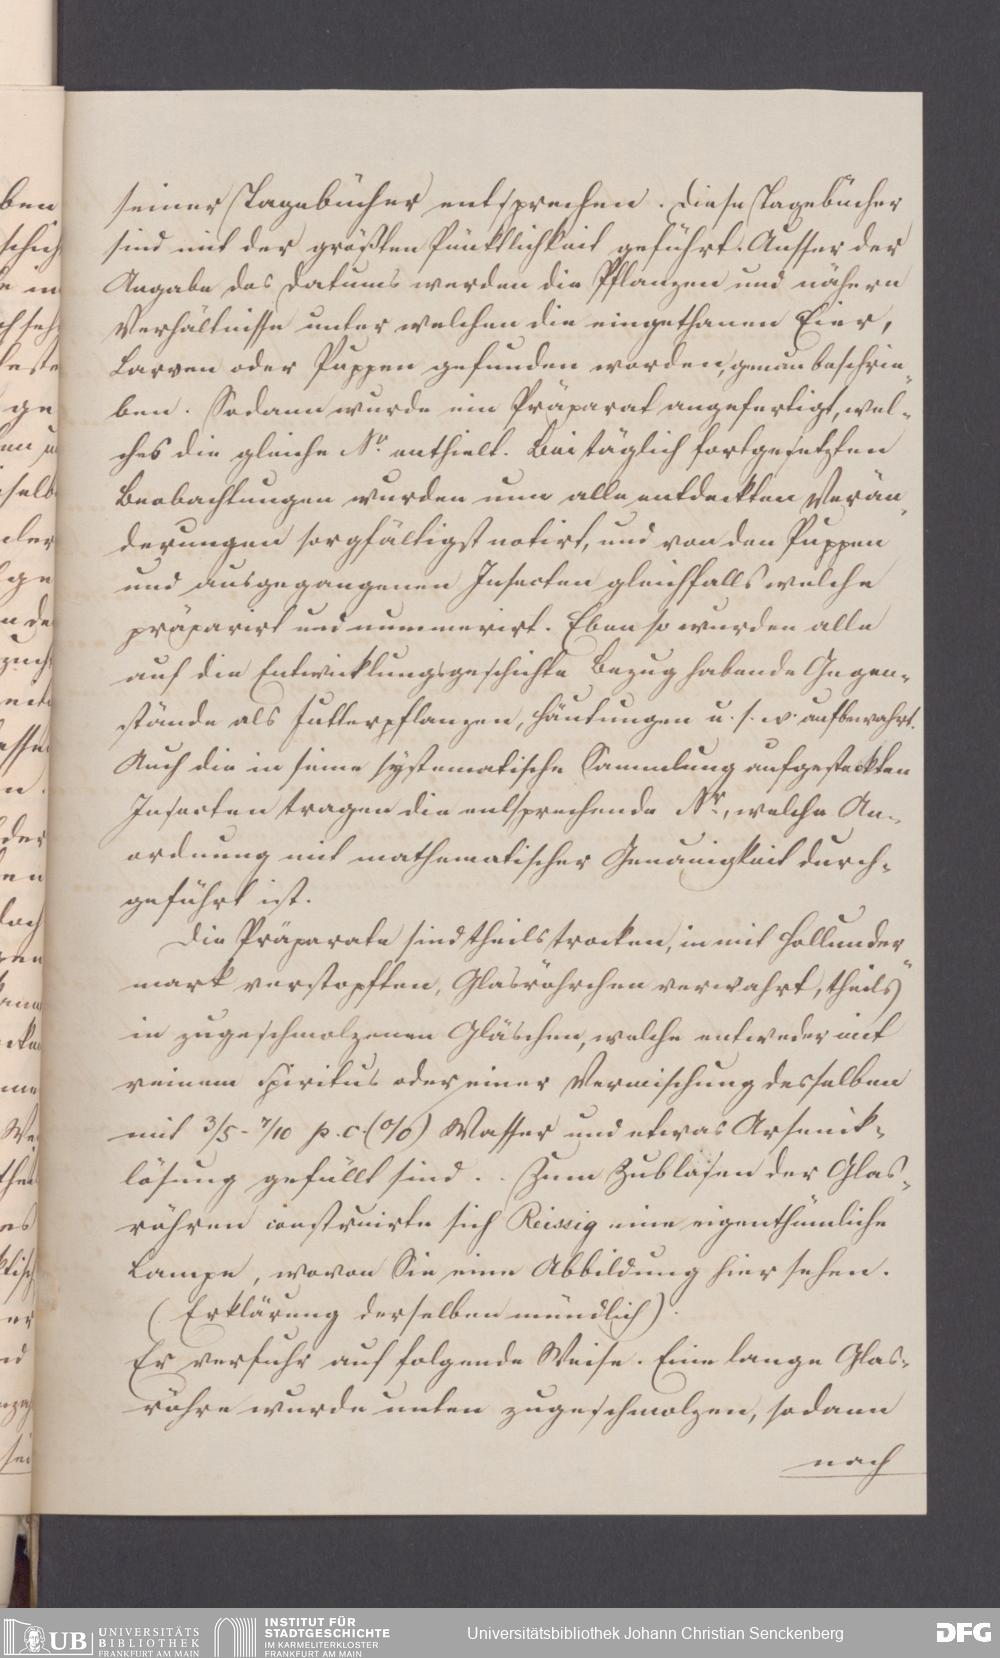 seiner Tagebücher entsprechen. Diese Tagebücher
sind mit der größten Pünktlichkeit geführt. Ausser der
Angabe des Datums werden die Pflanzen und nähern
Verhältnisse unter welchen die eingethanen Eier,
Larven oder Puppen gefunden worden, genau beschrie-
ben. Sodann wurde ein Präparat angefertigt, wel-
ches die gleiche Nr. enthielt. Bei täglich fortgesetzten
Beobachtungen wurden nun alle entdeckten Verän-
derungen sorgfältigst notirt, und von den Puppen
und ausgegangenen Insecten gleichfalls welche
präparirt und nummerirt. Eben so wurden alle
auf die Entwicklungsgeschichte Bezug habende Gegen-
stände als Futterpflanzen, Häutungen u. s. w. aufbewahrt.
Auch die in seine systematische Sammlung aufgesteckten
Insecten tragen die entsprechende Nr., welche An-
ordnung mit mathematischer Genauigkeit durch-
geführt ist.
Die Präparate sind theils trocken, in mit Hollunder-
mark verstopften, Glasröhrchen verwahrt, theils
in zugeschmolzenen Gläschen, welche entweder mit
reinem Spiritus oder einer Vermischung desselben
mit 3/5 - 7/10 p. c (%) Wasser und etwas Arsenik-
lösung gefüllt sind. . Zum Zublasen der Glas-
röhren construirte sich Reissig eine eigenthümliche
Lampe, wovon Sie eine Abbildung hier sehen.
(Erklärung derselben mündlich).
Er verfuhr auf folgende Weise. Eine lange Glas-
röhre wurde unten zugeschmolzen, sodann
nach
UB UNIVERSITÄTS
BIBLIOTHEK
FRANKFURT AM MAIN
INSTITUT FÜR
STADTGESCHICHTE
IM KARMELITERKLOSTER
FRANKFURT AM MAIN
Universitätsbibliothek Johann Christian Senckenberg
DFG